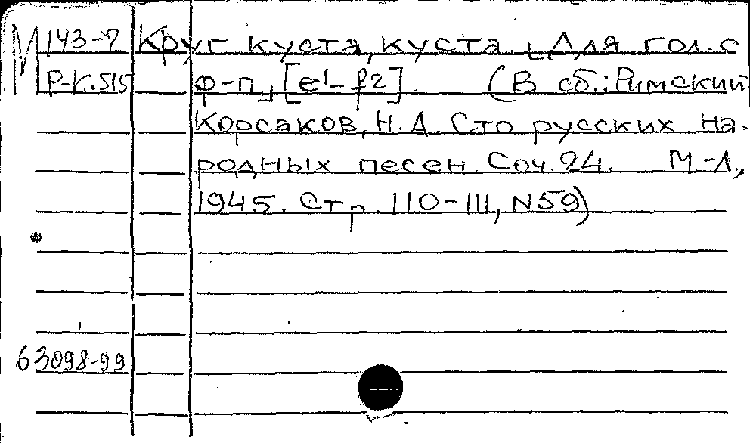 М 143-7 Круг куста, куста. [Для гол. с
Р-К.515 ф-п.] [e1-f2]. (В сб.: Римский
Корсаков, Н.А. Сто русских на-
родных песен. Соч. 24. М.-Л.,
1945. Стр. 110-111, N59)
63098-99